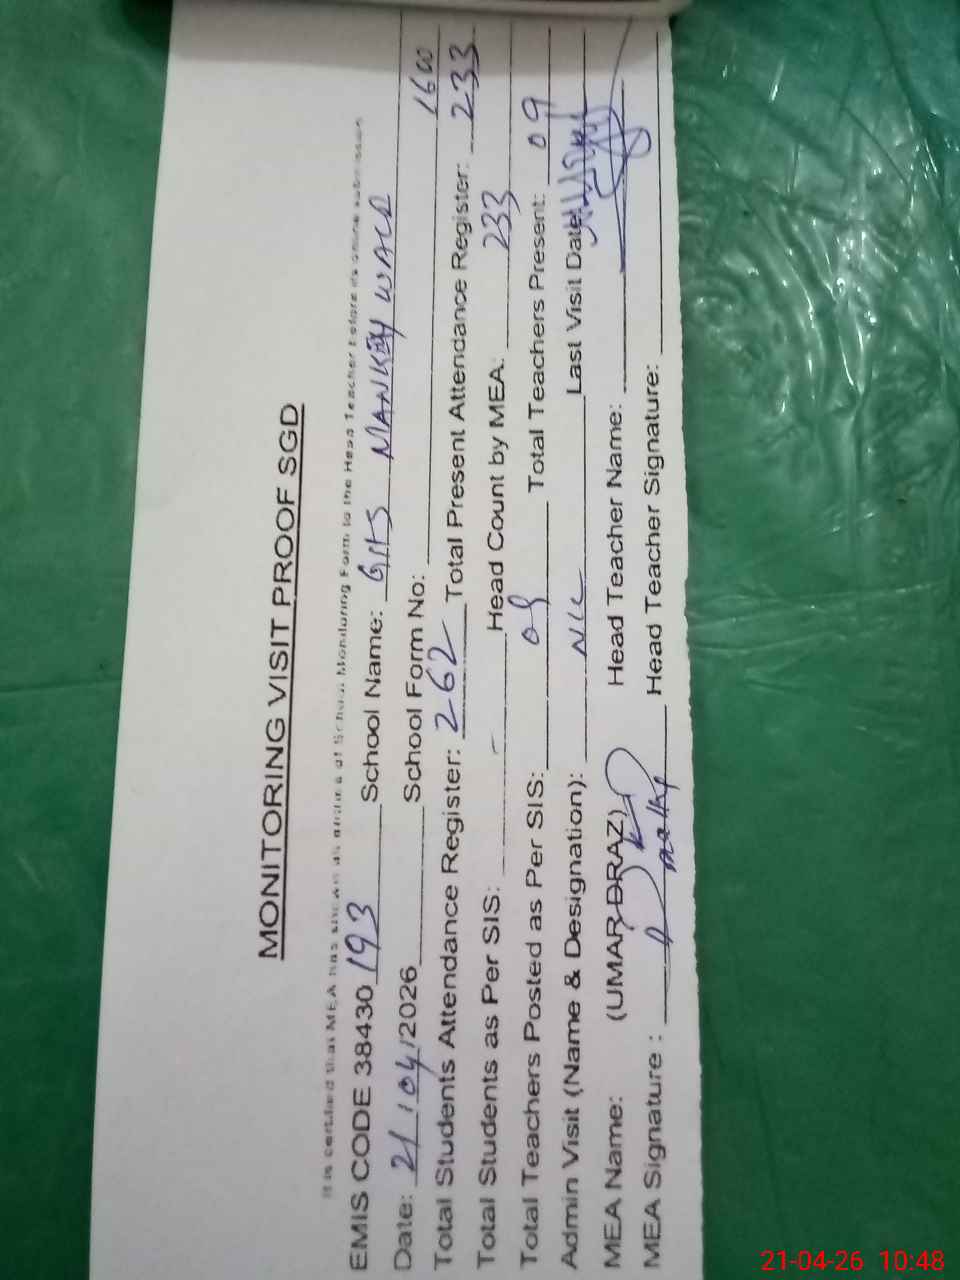 MONITORING VISIT PROOF SGD
It is certified that MEA has shown all entries of School Monitoring Form to the Head Teacher before its online submission
EMIS CODE 38430193 School Name: GHS MANKEY WALA
Date: 21/04/2026 School Form No: 1600
Total Students Attendance Register: 262 Total Present Attendance Register: 233
Total Students as Per SIS: - Head Count by MEA: 233
Total Teachers Posted as Per SIS: 09 Total Teachers Present: 09
Admin Visit (Name & Designation): NIL Last Visit Date:
MEA Name: (UMAR DRAZ) Head Teacher Name:
MEA Signature : Head Teacher Signature:
21-04-26 10:48